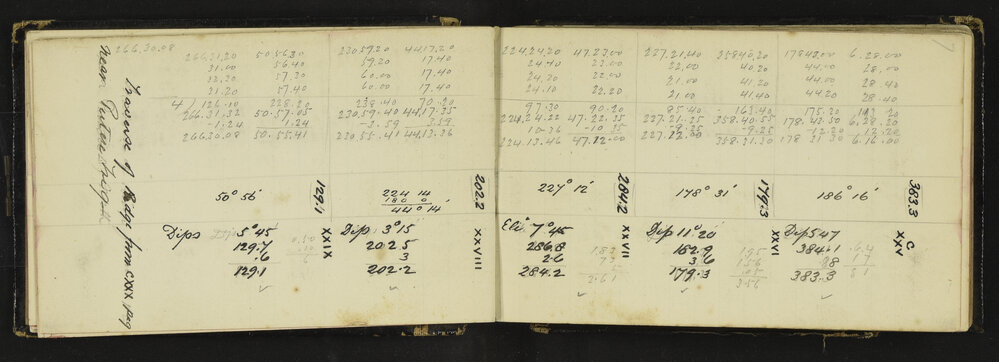 Traverse of Ridge from CXXX flag
near
266.30.08
266.31.20 50.56.20 230.59.20 44.17.20
31.00 56.40 59.20 17.40
32.20 57.20 60.00 17.40
31.20 57.40 60.00 17.40
4/126.10 228.20 238.40 70.20
266.31.32 50.57.05 230.59.40 44.17.35
-1.24 1.24 -3.59 3.59
266.30.08 50.55.41 230.55.41 44.13.36
50° 56' 129.1 224 14 202.2
180 0
44° 14'
Dips 5°45 XXIX Dip 3°15 XXVIII
129.7 202.5
.6 3
129.1 202.2
224.24.20 47.23.00 227.21.40 358.40.20 178.43.00 6.28.00
24.40 23.00 22.00 40.20 44.00 28.00
24.20 22.00 21.00 41.20 44.00 28.40
24.10 22.20 21.00 41.20 44.20 28.40
97.30 90.20 85.40 163.40 175.20
224.24.22 47.22.35 227.21.25 358.40.55 178.43.50 6.28.20
10.36 -10.35 -9.25 -9.25 12.20 12.20
224.13.46 47.12.00 227.12.00 358.31.30 178 31 30 6.16.00
227° 12' 284.2 178° 31' 179.3 186° 16' 383.3
Ele 7°45 XXVII Dip 11°20 XXVI Dip 5.47 C XXV
286.8 182.9 384.1
2.6 3.6 .8
284.2 179.3 383.3
2.61 3.56